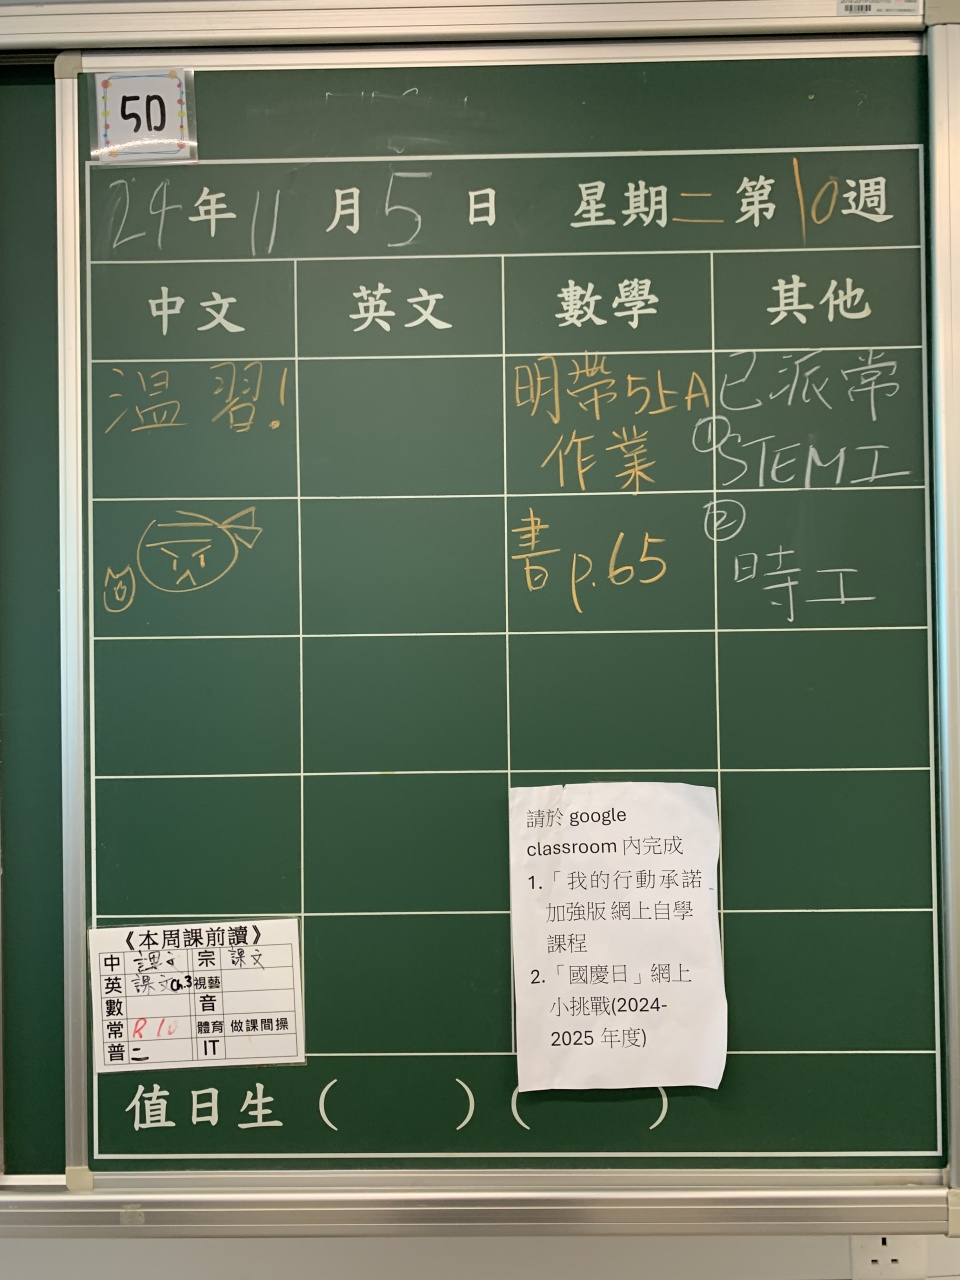 5D
24年11月5日 星期二第10週
中文 英文 數學 其他
溫習!
明帶5上A
作業
書p.65
已派常
①STEM工
②
時工
請於 google
classroom 內完成
1.「我的行動承諾
加強版 網上自學
課程
2.「國慶日」網上
小挑戰(2024-
2025 年度)
《本周課前讀》
中 課文 宗 課文
英 課文Ch.3 視藝
數 音
常 R10 體育 做課間操
普 二 IT
值日生 ( ) ( )